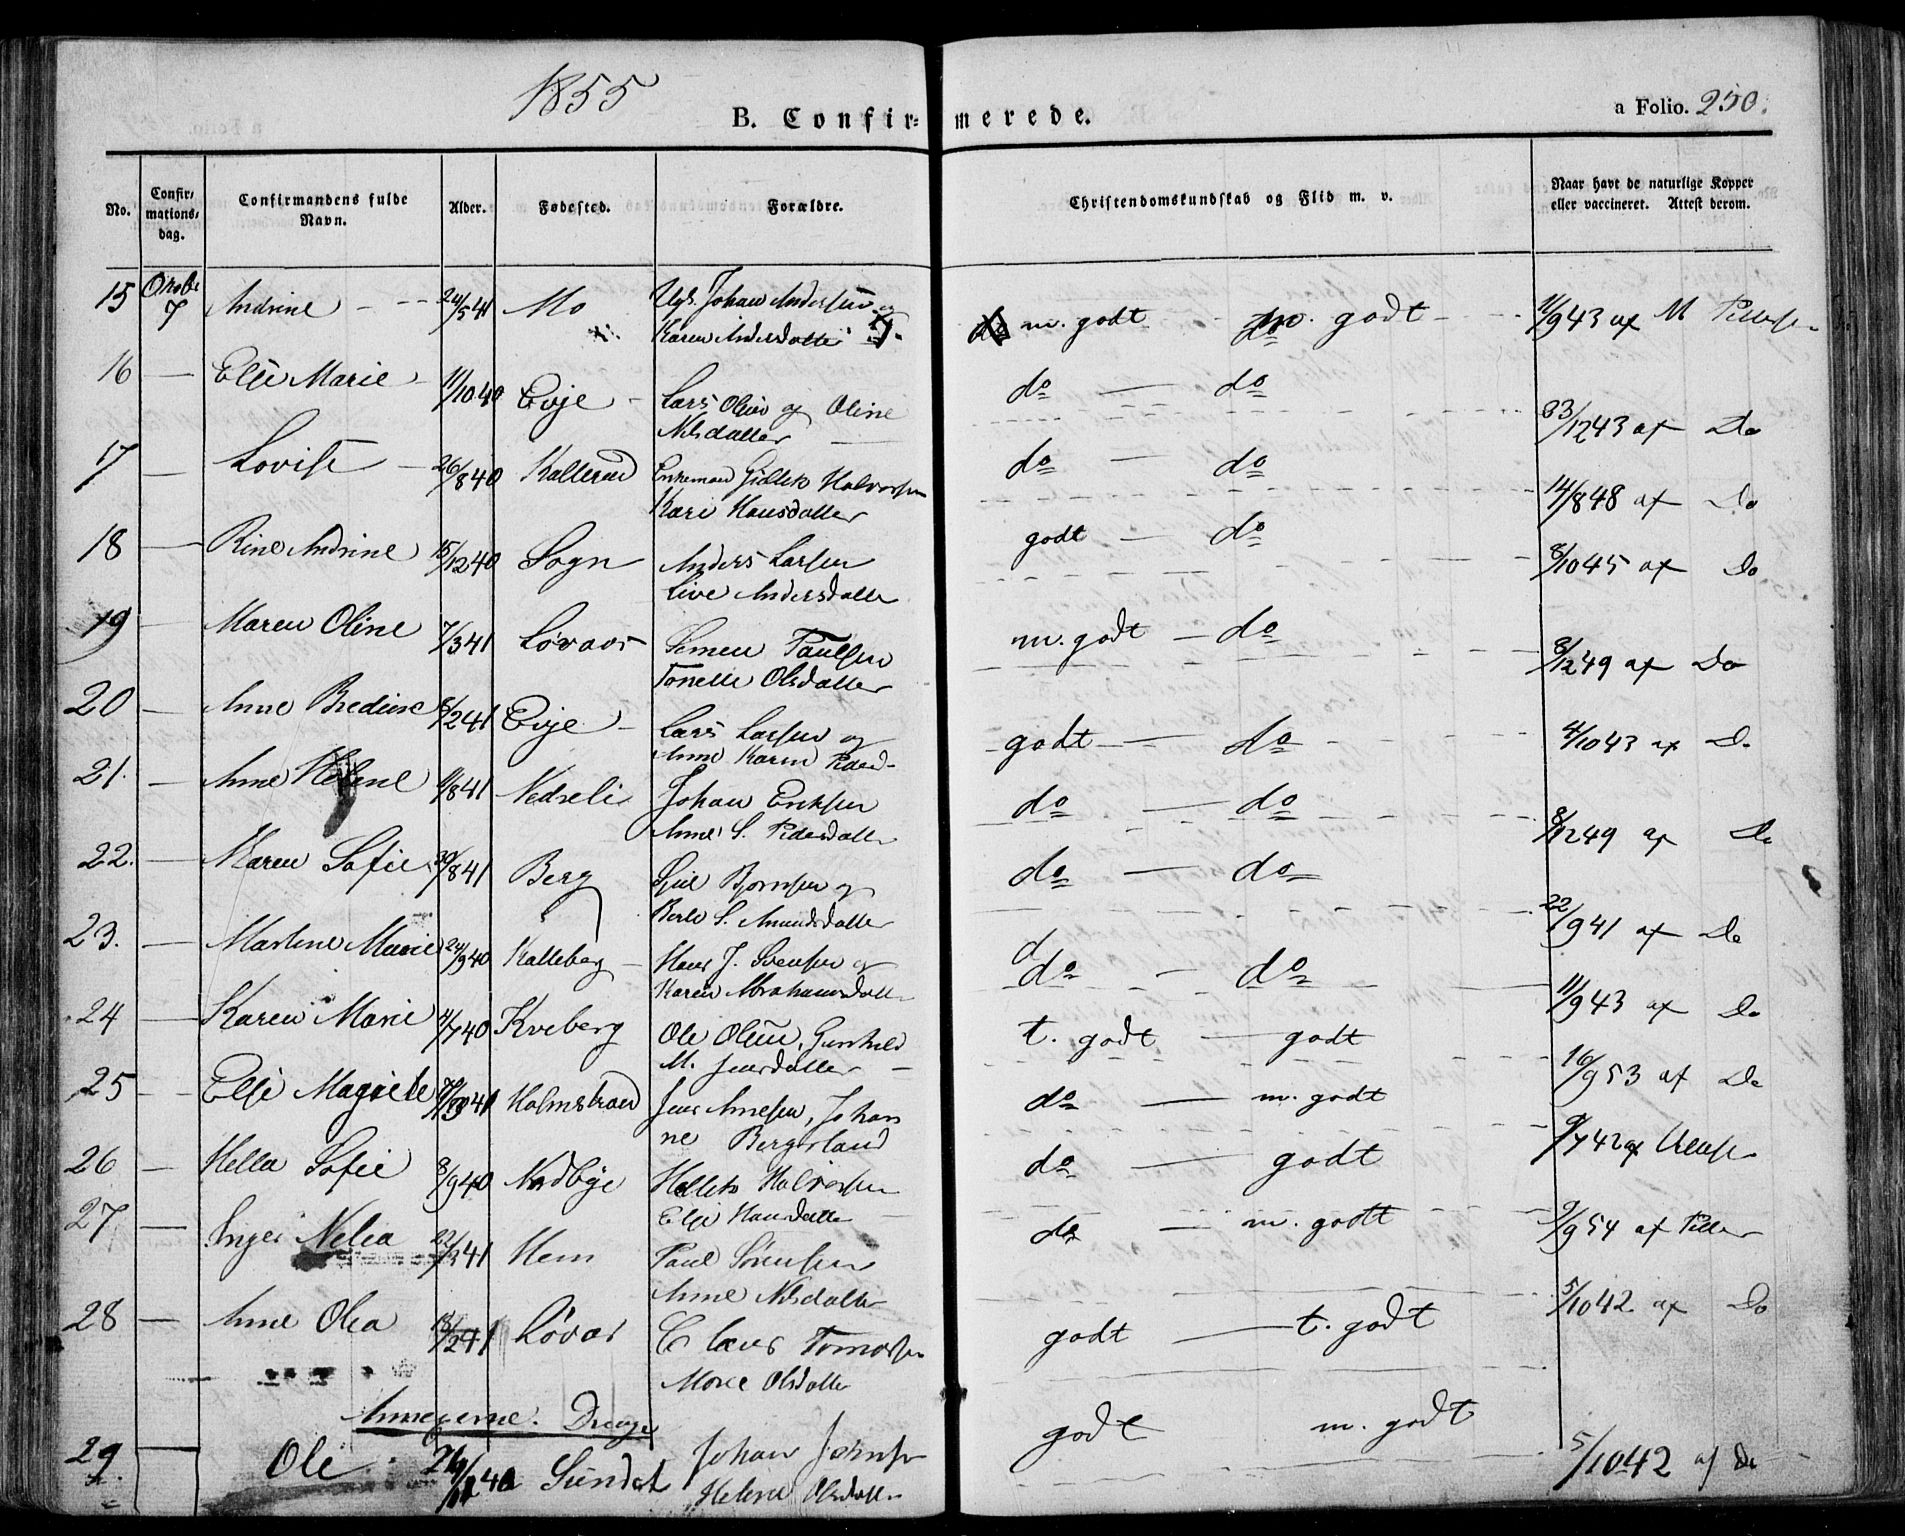 1855
B. Confirmerede.
a Folio. 250.
No. Confirmationsdag. Confirmandens fulde Navn. Alder. Fødested. Forældre. Christendomskundskab og Flid m. v. Naar havt de naturlige Kopper eller vaccineret. Attest derom.
15 7 Andrine 24/5 41 Mo Johan Andersen og m. godt godt 11/9 43 af M
Karen Andersdatter
16 — Else Marie 11/10 40 Evje Lars Olsen og Oline do — do 23/12 43 af Do
Nilsdatter
17 — Lovise 26/8 40 Kallerud Enkemand Halvorsen do — do 14/8 48 af Do
Kari Hansdatter
18 — Rine Andrine 15/12 40 Sogn Anders Larsen godt — do 8/10 45 af Do
Live Andersdatter
19 — Maren Oline 7/3 41 Løvaas Simen Paulsen m. godt — do 8/12 49 af Do
Tonette Olsdatter
20 — Anne Bredine 8/2 41 Evje Lars Larsen og godt — do 4/10 43 af Do
Anne Karen Pedersd
21. — Anne Helene 11/8 41 Nedreli Johan Eriksen do — do 8/12 49 af Do
Anne S. Pedersdatter
22. — Maren Sofie 30/8 41 Berg Bjørnsen og do — do 22/9 41 af Do
Berte S. Amundsdatter
23. — Martine Marie 24/9 40 Kalleberg Hans J. Svensen og do — do 11/9 43 af Do
Karen Abrahamsdatter
24 — Karen Marie 11/7 40 Kveberg Ole Olsen, Gunhild t. godt — godt 16/9 53 af Do
M. Jensdatter
25 — Else Magrete 41 Holmstrand Jens Arnesen, Johan do — m. godt 9/7 42 af
ne Bergsland
26 — Hella Sofie 8/9 40 Nordbye Hellek Halvorsen do — godt 9/9 54 af
Else Hansdatter
27 — Inger Nelia 22/3 41 Hem Paul Sørensen do — m. godt 5/10 42 af Do
Anne Nilsdatter
28 — Anne Olea 18/2 41 Løvas Claus godt — t. godt
Marie Olsdatter
Annexerne. Drenge
29 Ole 40 Sundet Johan godt m. godt 5/10 42 af Do
Helene Olsdatter